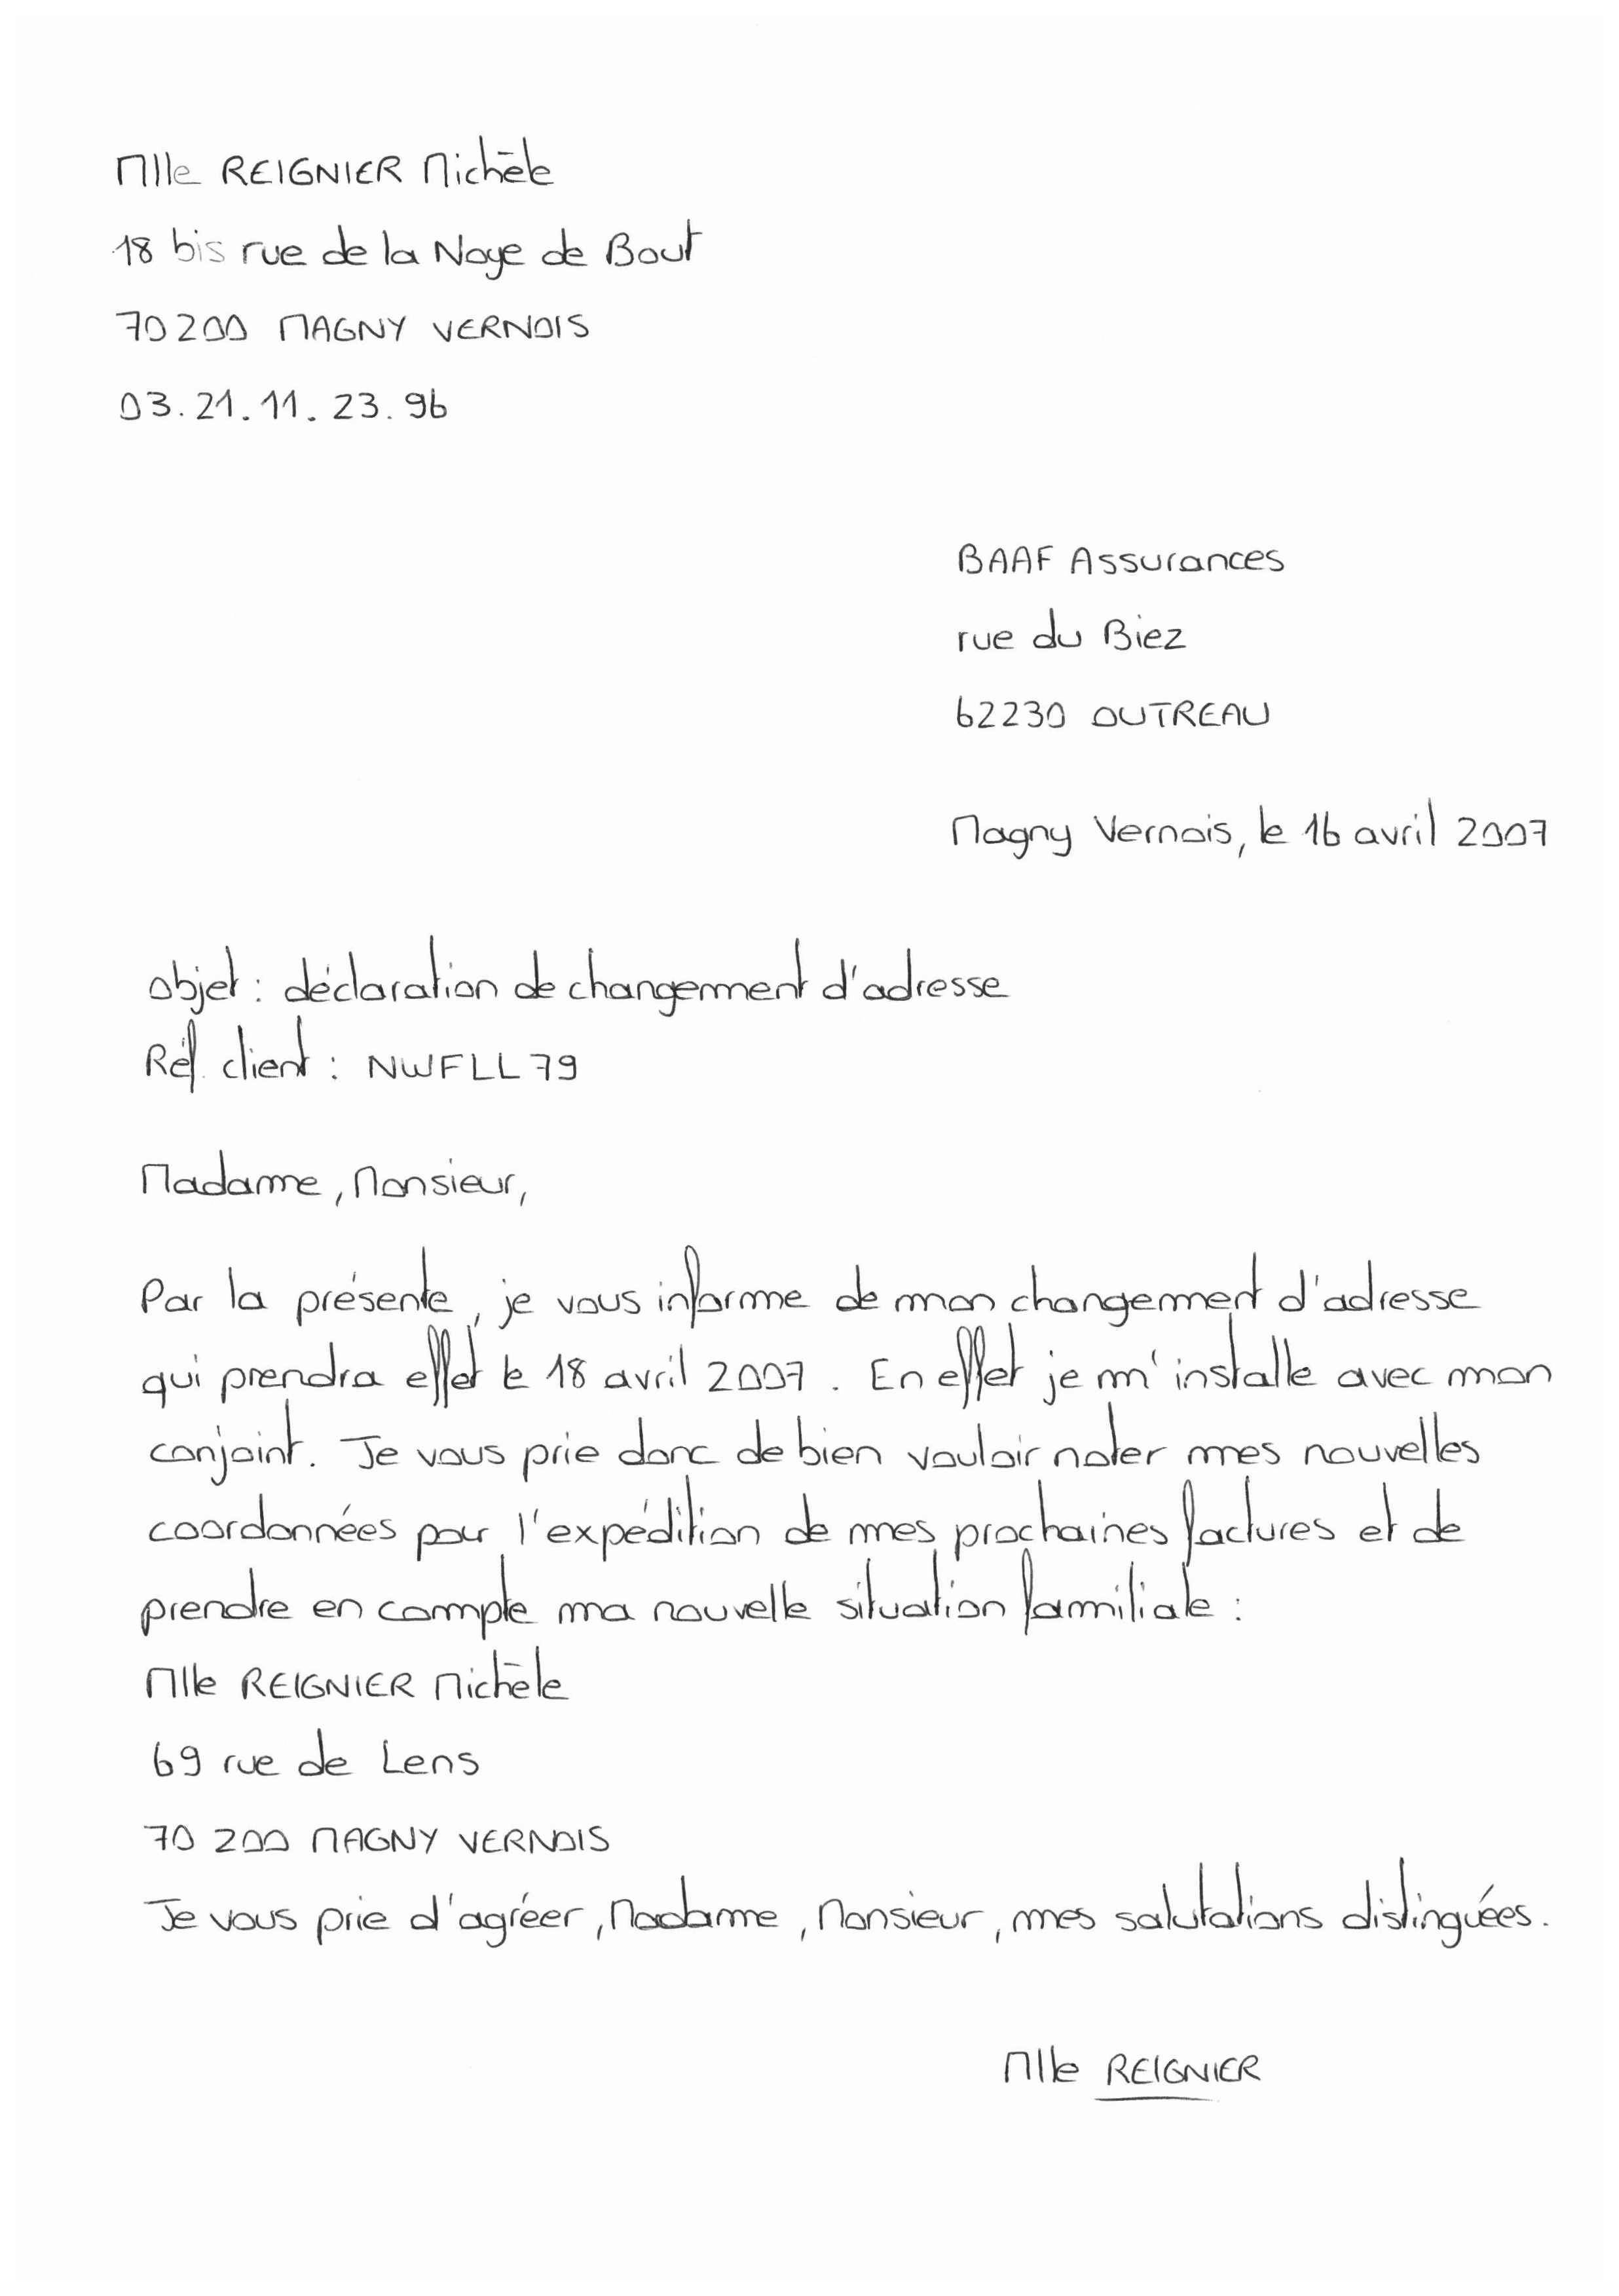 Mlle REIGNIER Michèle
18 bis rue de la Noye de Bout
70200 MAGNY VERNOIS
03.21.11.23.96
BAAF Assurances
rue du Biez
62230 OUTREAU
Magny Vernois, le 16 avril 2007
objet : déclaration de changement d'adresse
Réf. client : NWFLL79
Madame, Monsieur,
Par la présente, je vous informe de mon changement d'adresse
qui prendra effet le 18 avril 2007. En effet je m'installe avec mon
conjoint. Je vous prie donc de bien vouloir noter mes nouvelles
coordonnées pour l'expédition de mes prochaines factures et de
prendre en compte ma nouvelle situation familiale :
Mlle REIGNIER Michèle
69 rue de Lens
70 200 MAGNY VERNOIS
Je vous prie d'agréer, Madame, Monsieur, mes salutations distinguées.
Mlle REIGNIER